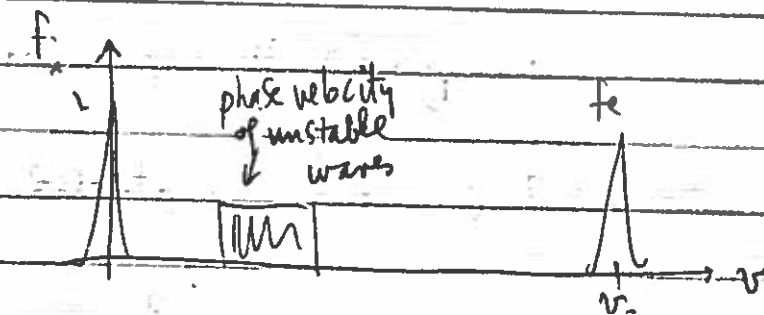 f
phase velocity
of unstable
waves
fe
v
v₀